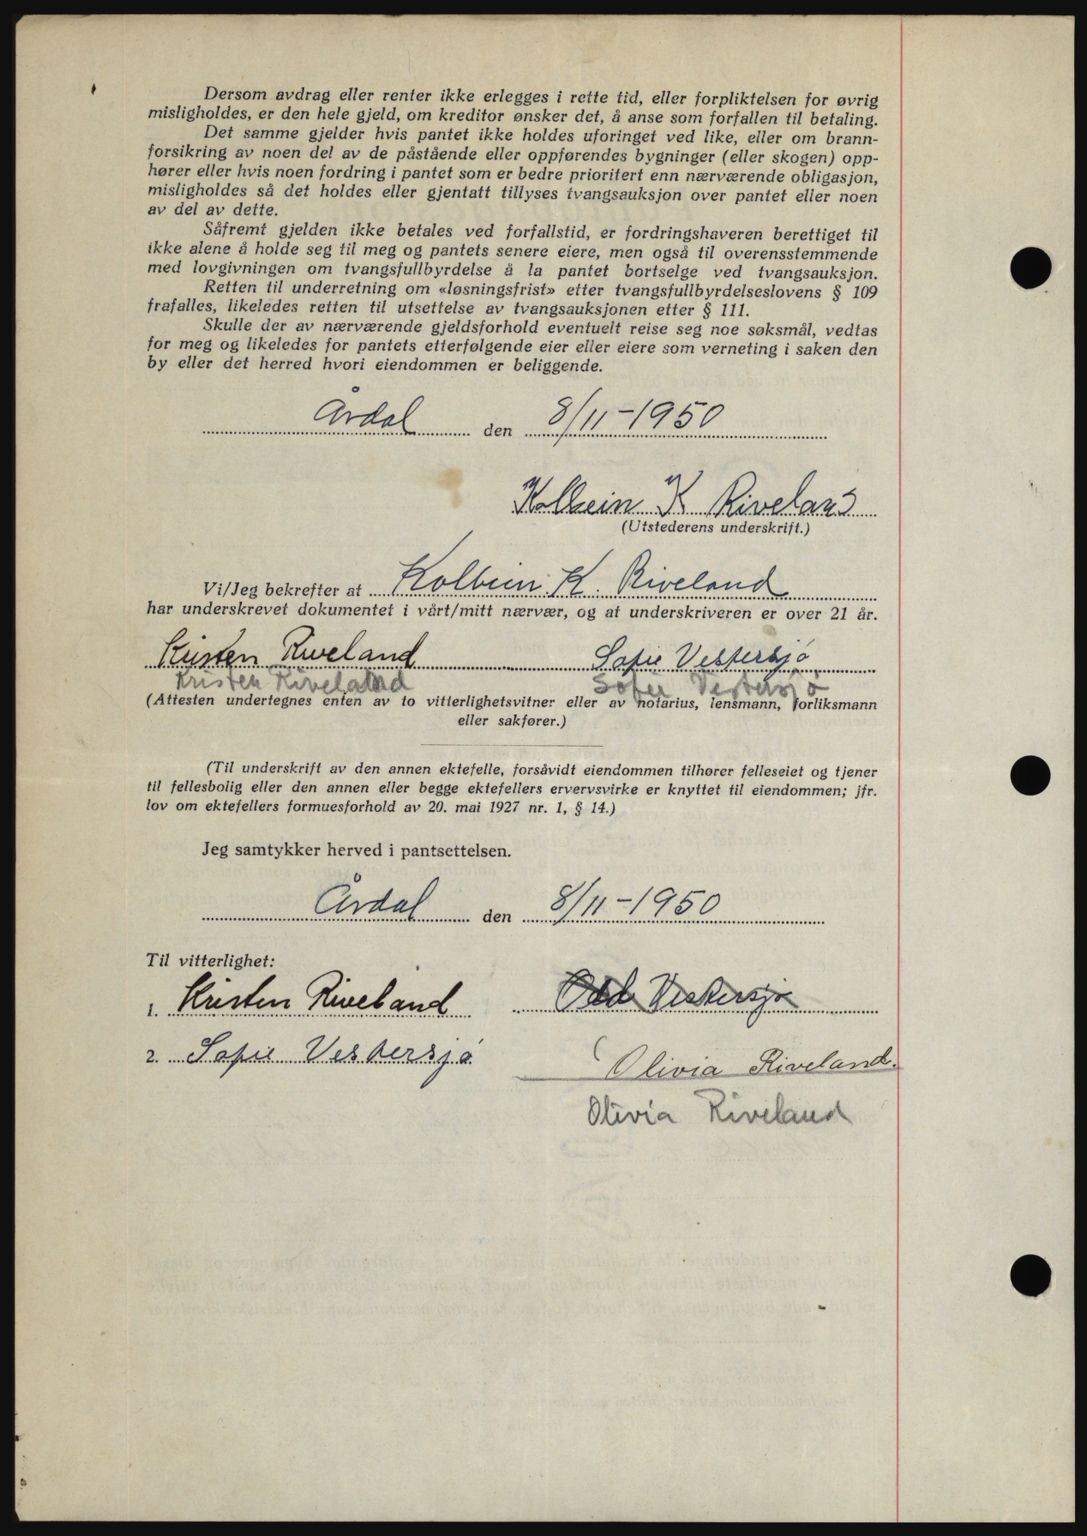 Dersom avdrag eller renter ikke erlegges i rette tid, eller forpliktelsen for øvrig
misligholdes, er den hele gjeld, om kreditor ønsker det, å anse som forfallen til betaling.
Det samme gjelder hvis pantet ikke holdes uforinget ved like, eller om brann-
forsikring av noen del av de påstående eller oppførendes bygninger (eller skogen) opp-
hører eller hvis noen fordring i pantet som er bedre prioritert enn nærværende obligasjon,
misligholdes så det holdes eller gjentatt tillyses tvangsauksjon over pantet eller noen
av del av dette.
Såfremt gjelden ikke betales ved forfallstid, er fordringshaveren berettiget til
ikke alene å holde seg til meg og pantets senere eiere, men også til overensstemmende
med lovgivningen om tvangsfullbyrdelse å la pantet bortselge ved tvangsauksjon.
Retten til underretning om «løsningsfrist» etter tvangsfullbyrdelseslovens § 109
frafalles, likeledes retten til utsettelse av tvangsauksjonen etter § 111.
Skulle der av nærværende gjeldsforhold eventuelt reise seg noe søksmål, vedtas
for meg og likeledes for pantets etterfølgende eier eller eiere som verneting i saken den
by eller det herred hvori eiendommen er beliggende.
Årdal den 8/11-1950
Kolbein K Riveland
(Utstederens underskrift.)
Vi/Jeg bekrefter at Kolbein K. Riveland
har underskrevet dokumentet i vårt/mitt nærvær, og at underskriveren er over 21 år.
Kristen Riveland Sofie Vestersjø
Kristen Riveland Sofie Vestersjø
(Attesten undertegnes enten av to vitterlighetsvitner eller av notarius, lensmann, forliksmann
eller sakfører.)
(Til underskrift av den annen ektefelle, forsåvidt eiendommen tilhører felleseiet og tjener
til fellesbolig eller den annen eller begge ektefellers ervervsvirke er knyttet til eiendommen; jfr.
lov om ektefellers formuesforhold av 20. mai 1927 nr. 1, § 14.)
Jeg samtykker herved i pantsettelsen.
Årdal den 8/11-1950
Til vitterlighet:
1. Kristen Riveland Odd Vestersjø
2. Sofie Vestersjø Olivia Riveland.
Olivia Riveland